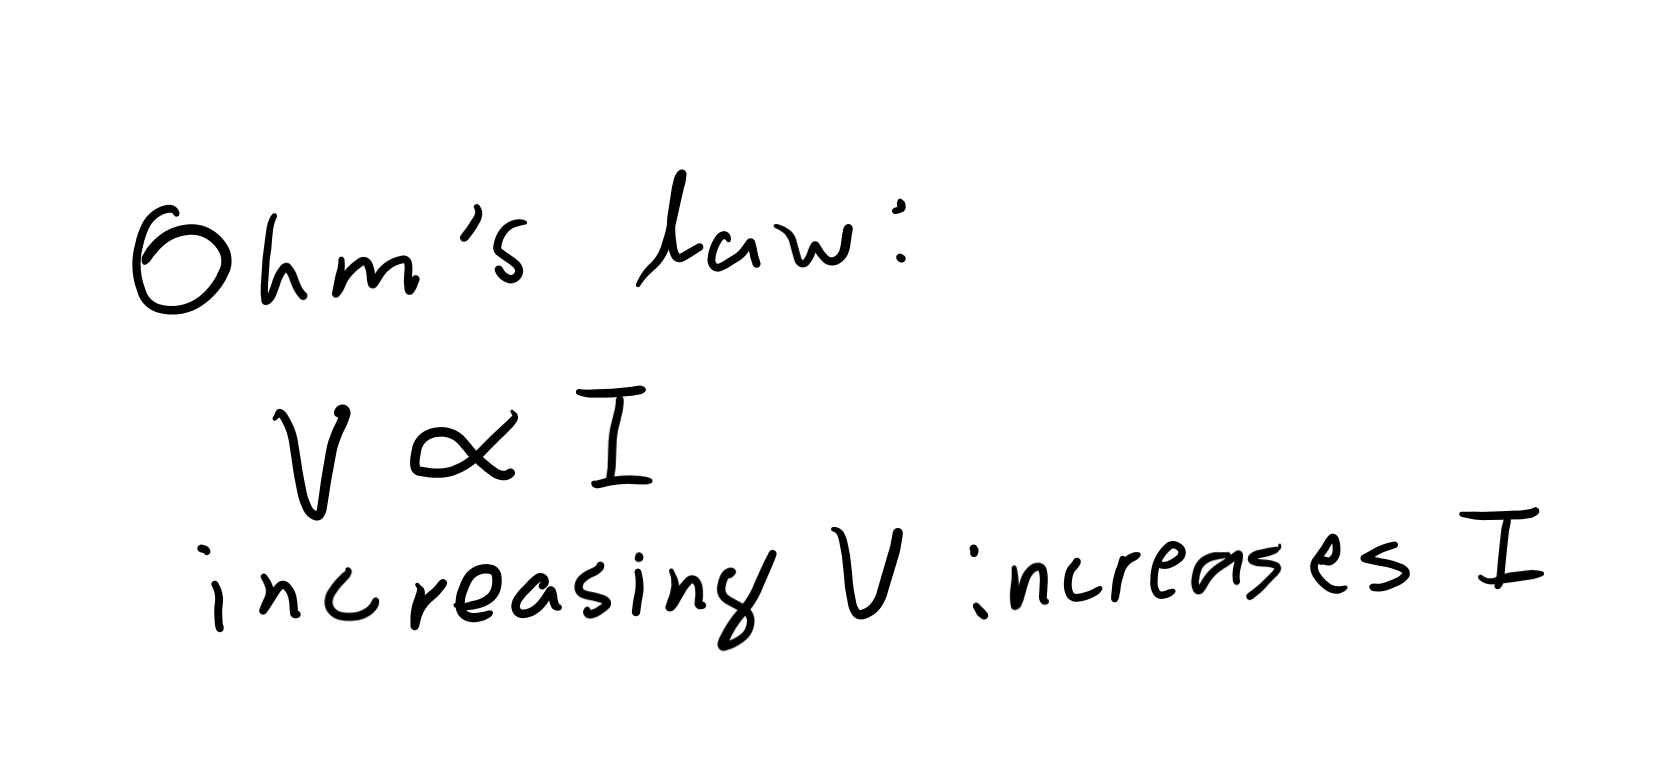 Ohm's law:
V ∝ I
increasing V increases I